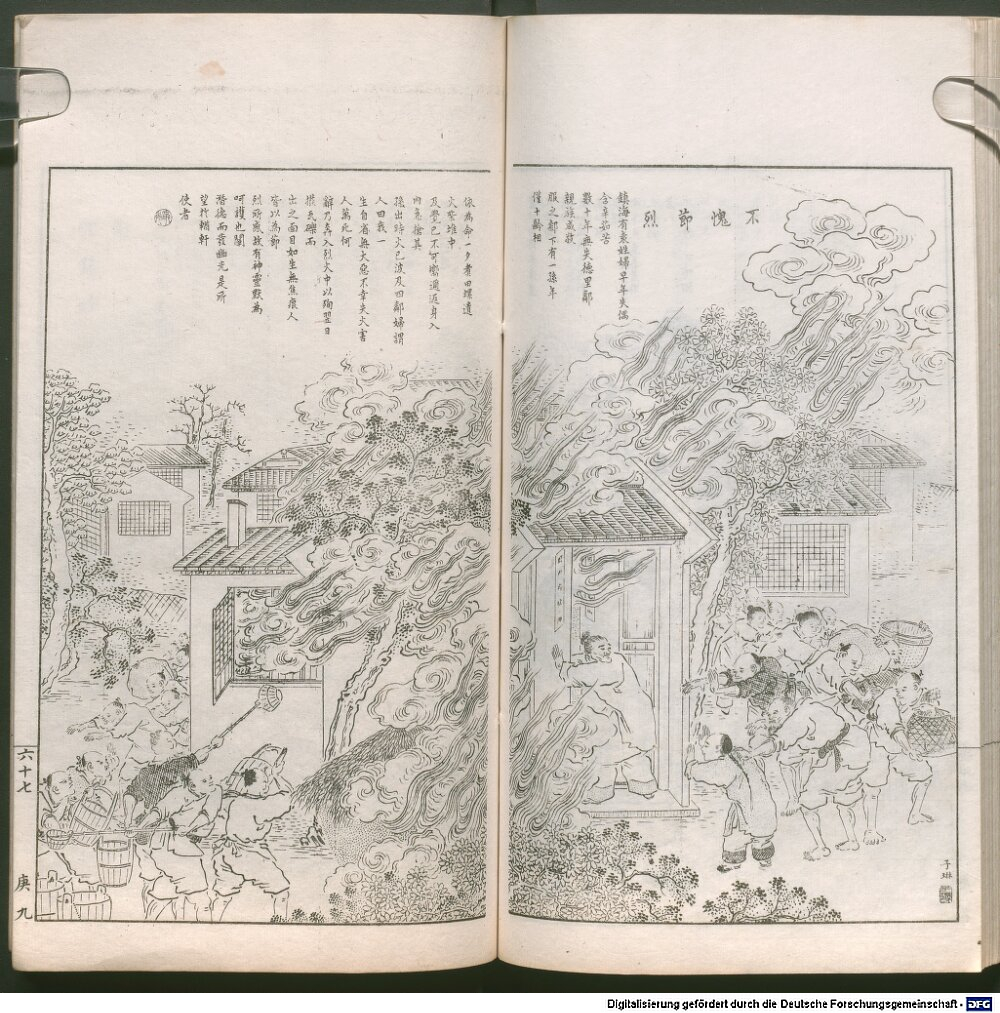 不愧節烈
鎮海有袁姓婦早年失偶
含辛茹苦
數十年無失德里鄰
親族咸敬
服之鄰下有一孫年
僅十齡相
依為命一夕煮田螺遺
火柴堆中
及覺已不可嚮邇返身入
內急搶其
孫出時火已波及四鄰婦謂
人曰我一
生自省無大惡不幸失火害
人萬死何
辭乃奔入烈火中以殉翌日
撥瓦礫而
出之面目如生無焦痕人
皆以為節
烈所感故有神靈默為
呵護也闡
潛德而發幽光是所
望於輶軒
使者
子琳
六十七
庚九
Digitalisierung gefördert durch die Deutsche Forschungsgemeinschaft - DFG